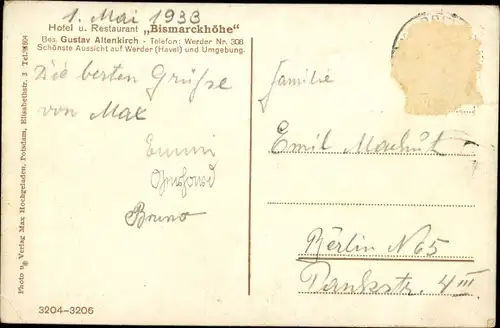 1. Mai 1933
Hotel u. Restaurant „Bismarckhöhe"
Bes. Gustav Altenkirch - Telefon: Werder Nr. 308
Schönste Aussicht auf Werder (Havel) und Umgebung.
Die besten Grüße
von Max
Emmi
Bruno
Familie
Emil Machut
Berlin N 65
Pankstr. 4 III
Photo u. Verlag Max Hochgeladen, Potsdam, Elisabethstr. 3 Tel.
3204-3206